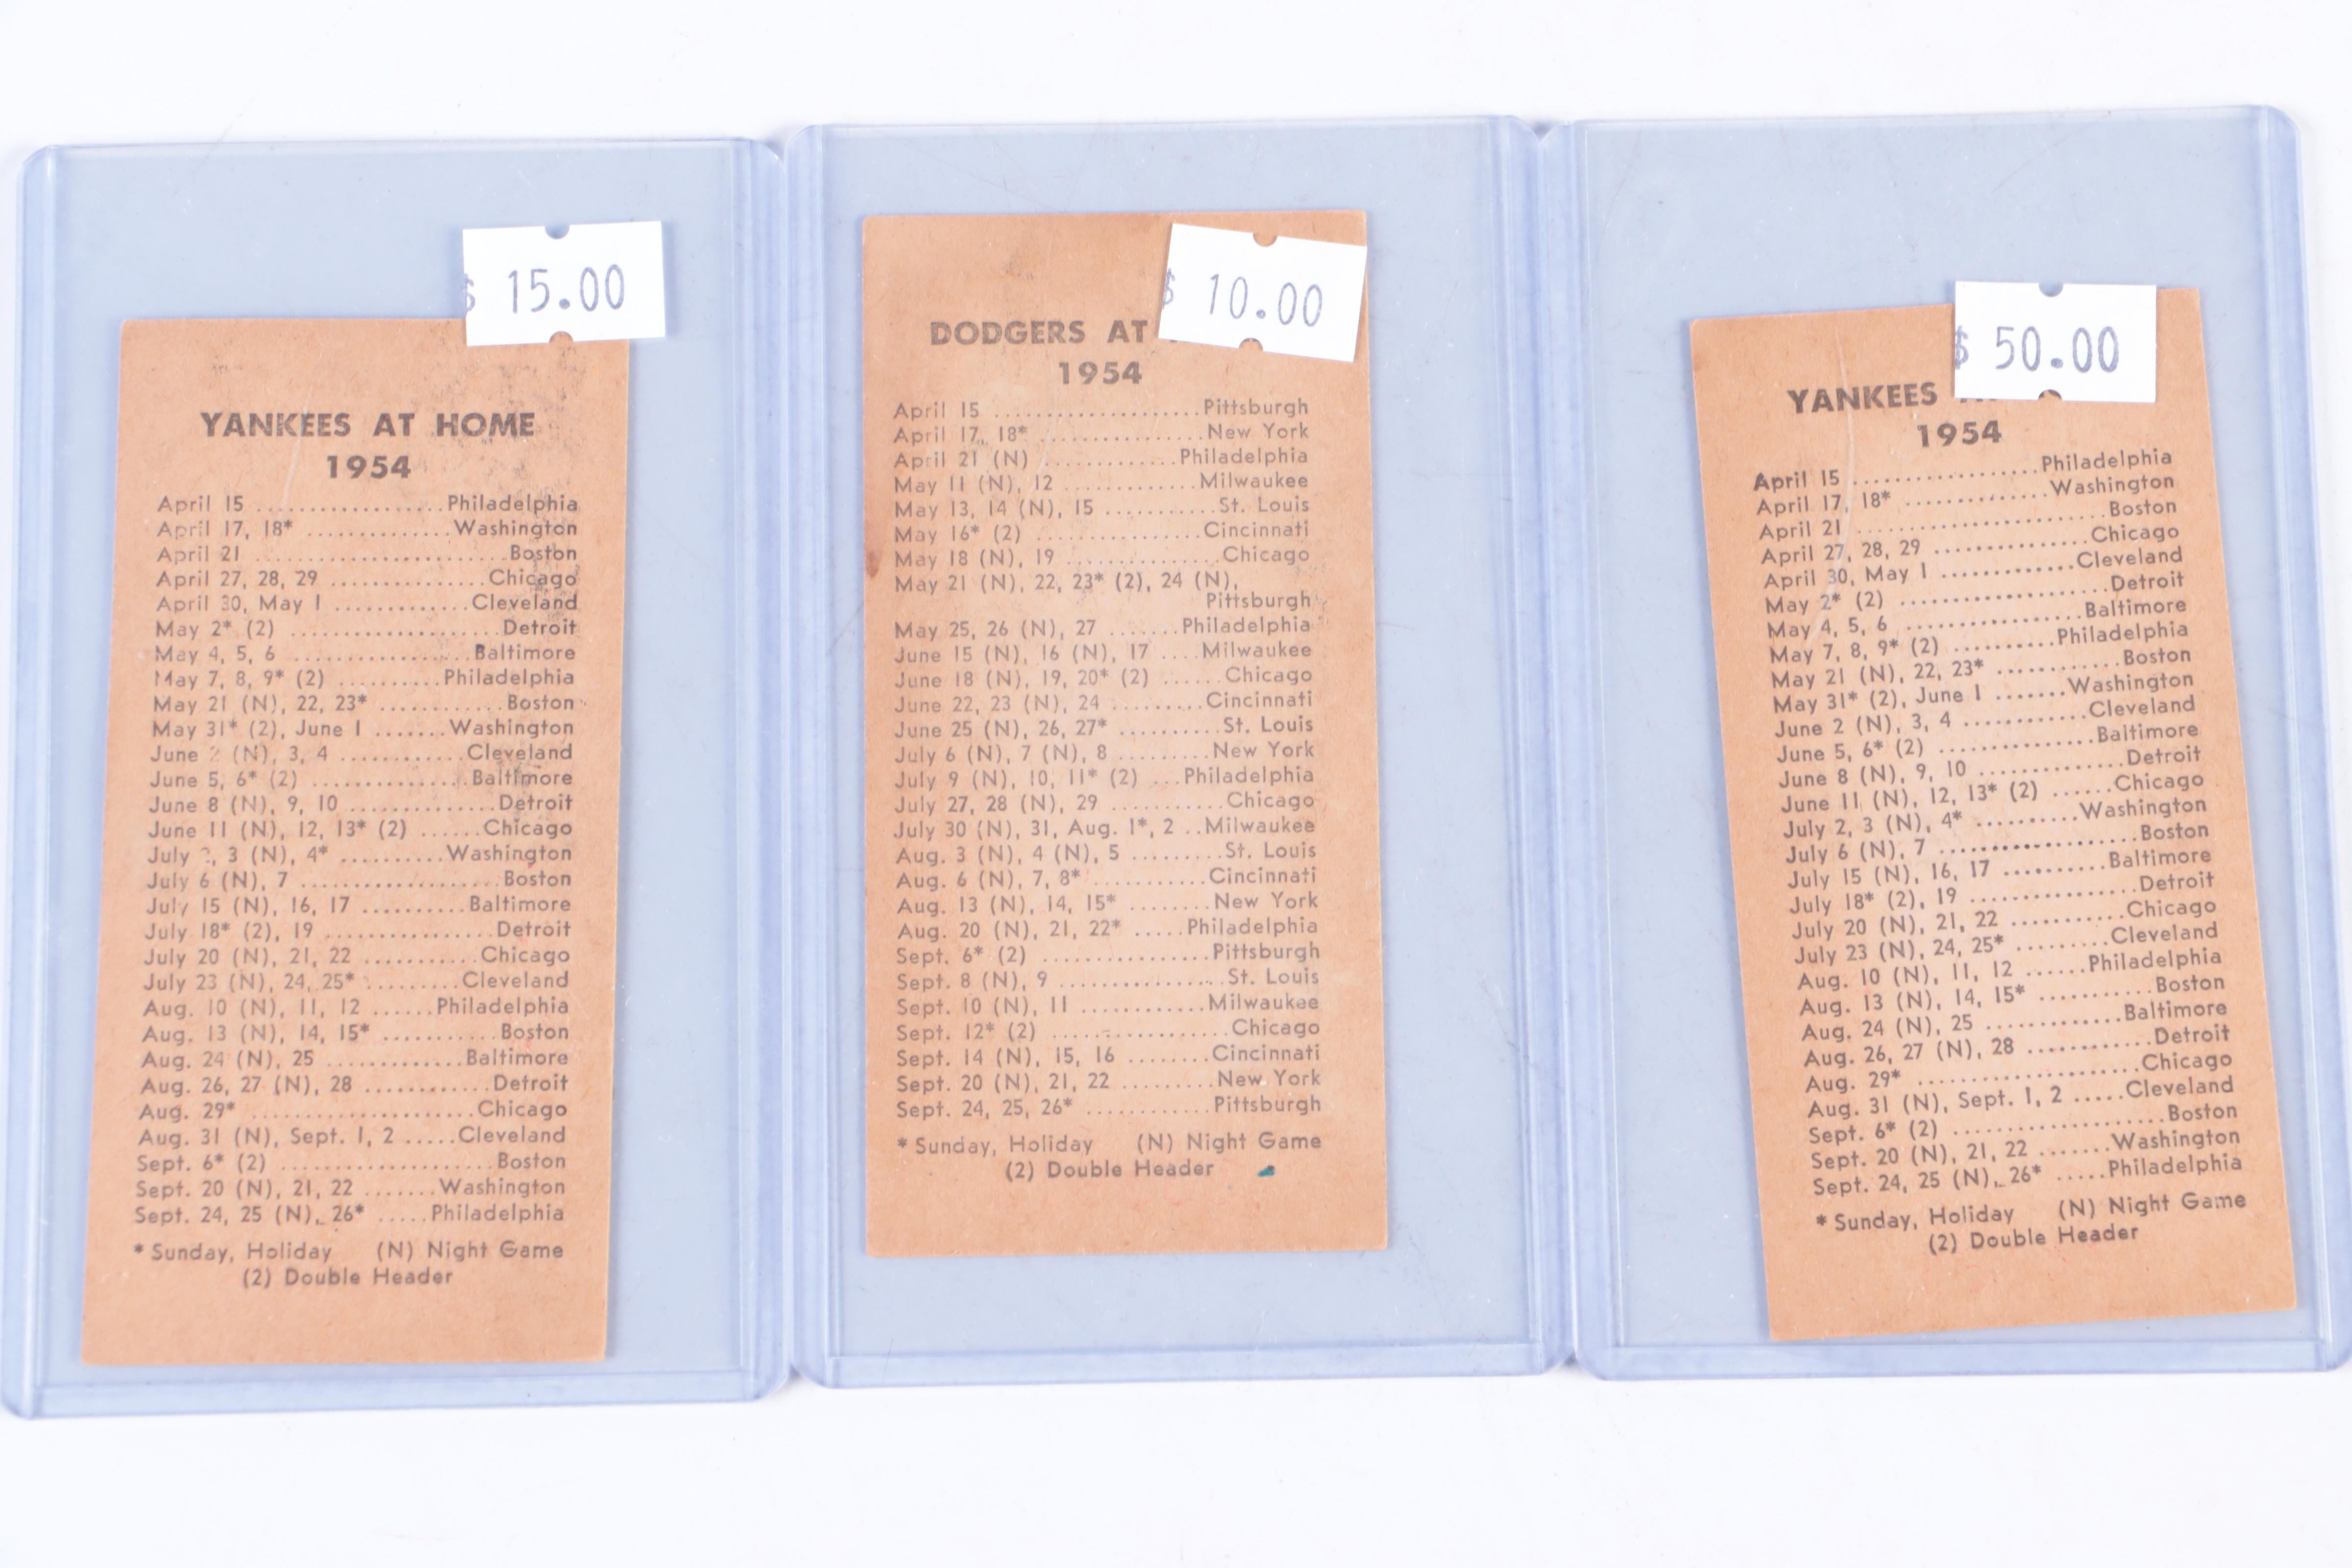 $ 15.00
YANKEES AT HOME
1954
April 15 ..................Philadelphia
April 17, 18* ..............Washington
April 21 .........................Boston
April 27, 28, 29 ...............Chicago
April 30, May 1 .............Cleveland
May 2* (2) .....................Detroit
May 4, 5, 6 ..................Baltimore
May 7, 8, 9* (2) ..........Philadelphia
May 21 (N), 22, 23* ............Boston
May 31* (2), June 1 .......Washington
June 2 (N), 3, 4 ............Cleveland
June 5, 6* (2) ...............Baltimore
June 8 (N), 9, 10 ...............Detroit
June 11 (N), 12, 13* (2) ......Chicago
July 2, 3 (N), 4* ..........Washington
July 6 (N), 7 ....................Boston
July 15 (N), 16, 17 ..........Baltimore
July 18* (2), 19 .................Detroit
July 20 (N), 21, 22 ...........Chicago
July 23 (N), 24, 25* ..........Cleveland
Aug. 10 (N), 11, 12 ......Philadelphia
Aug. 13 (N), 14, 15* ...........Boston
Aug. 24 (N), 25 .............Baltimore
Aug. 26, 27 (N), 28 ............Detroit
Aug. 29* ......................Chicago
Aug. 31 (N), Sept. 1, 2 .....Cleveland
Sept. 6* (2) .....................Boston
Sept. 20 (N), 21, 22 .......Washington
Sept. 24, 25 (N), 26* .....Philadelphia
* Sunday, Holiday (N) Night Game
(2) Double Header
$ 10.00
DODGERS AT
1954
April 15 ....................Pittsburgh
April 17, 18* ................New York
April 21 (N) .............Philadelphia
May 11 (N), 12 .............Milwaukee
May 13, 14 (N), 15 ...........St. Louis
May 16* (2) ...............Cincinnati
May 18 (N), 19 ...............Chicago
May 21 (N), 22, 23* (2), 24 (N),
Pittsburgh
May 25, 26 (N), 27 .......Philadelphia
June 15 (N), 16 (N), 17 ....Milwaukee
June 18 (N), 19, 20* (2) ......Chicago
June 22, 23 (N), 24 .........Cincinnati
June 25 (N), 26, 27* ..........St. Louis
July 6 (N), 7 (N), 8 .........New York
July 9 (N), 10, 11* (2) ...Philadelphia
July 27, 28 (N), 29 ...........Chicago
July 30 (N), 31, Aug. 1*, 2 ..Milwaukee
Aug. 3 (N), 4 (N), 5 .........St. Louis
Aug. 6 (N), 7, 8* ...........Cincinnati
Aug. 13 (N), 14, 15* ........New York
Aug. 20 (N), 21, 22* .....Philadelphia
Sept. 6* (2) ................Pittsburgh
Sept. 8 (N), 9 ................St. Louis
Sept. 10 (N), 11 ............Milwaukee
Sept. 12* (2) .................Chicago
Sept. 14 (N), 15, 16 ........Cincinnati
Sept. 20 (N), 21, 22 .........New York
Sept. 24, 25, 26* ............Pittsburgh
* Sunday, Holiday (N) Night Game
(2) Double Header
$ 50.00
YANKEES
1954
April 15 ..................Philadelphia
April 17, 18* ..............Washington
April 21 .........................Boston
April 27, 28, 29 ...............Chicago
April 30, May 1 .............Cleveland
May 2* (2) .....................Detroit
May 4, 5, 6 ..................Baltimore
May 7, 8, 9* (2) ..........Philadelphia
May 21 (N), 22, 23* ............Boston
May 31* (2), June 1 .......Washington
June 2 (N), 3, 4 ............Cleveland
June 5, 6* (2) ...............Baltimore
June 8 (N), 9, 10 ...............Detroit
June 11 (N), 12, 13* (2) ......Chicago
July 2, 3 (N), 4* ..........Washington
July 6 (N), 7 ....................Boston
July 15 (N), 16, 17 ..........Baltimore
July 18* (2), 19 .................Detroit
July 20 (N), 21, 22 ...........Chicago
July 23 (N), 24, 25* .........Cleveland
Aug. 10 (N), 11, 12 ......Philadelphia
Aug. 13 (N), 14, 15* ...........Boston
Aug. 24 (N), 25 .............Baltimore
Aug. 26, 27 (N), 28 ............Detroit
Aug. 29* ......................Chicago
Aug. 31 (N), Sept. 1, 2 .....Cleveland
Sept. 6* (2) .....................Boston
Sept. 20 (N), 21, 22 .......Washington
Sept. 24, 25 (N), 26* .....Philadelphia
* Sunday, Holiday (N) Night Game
(2) Double Header